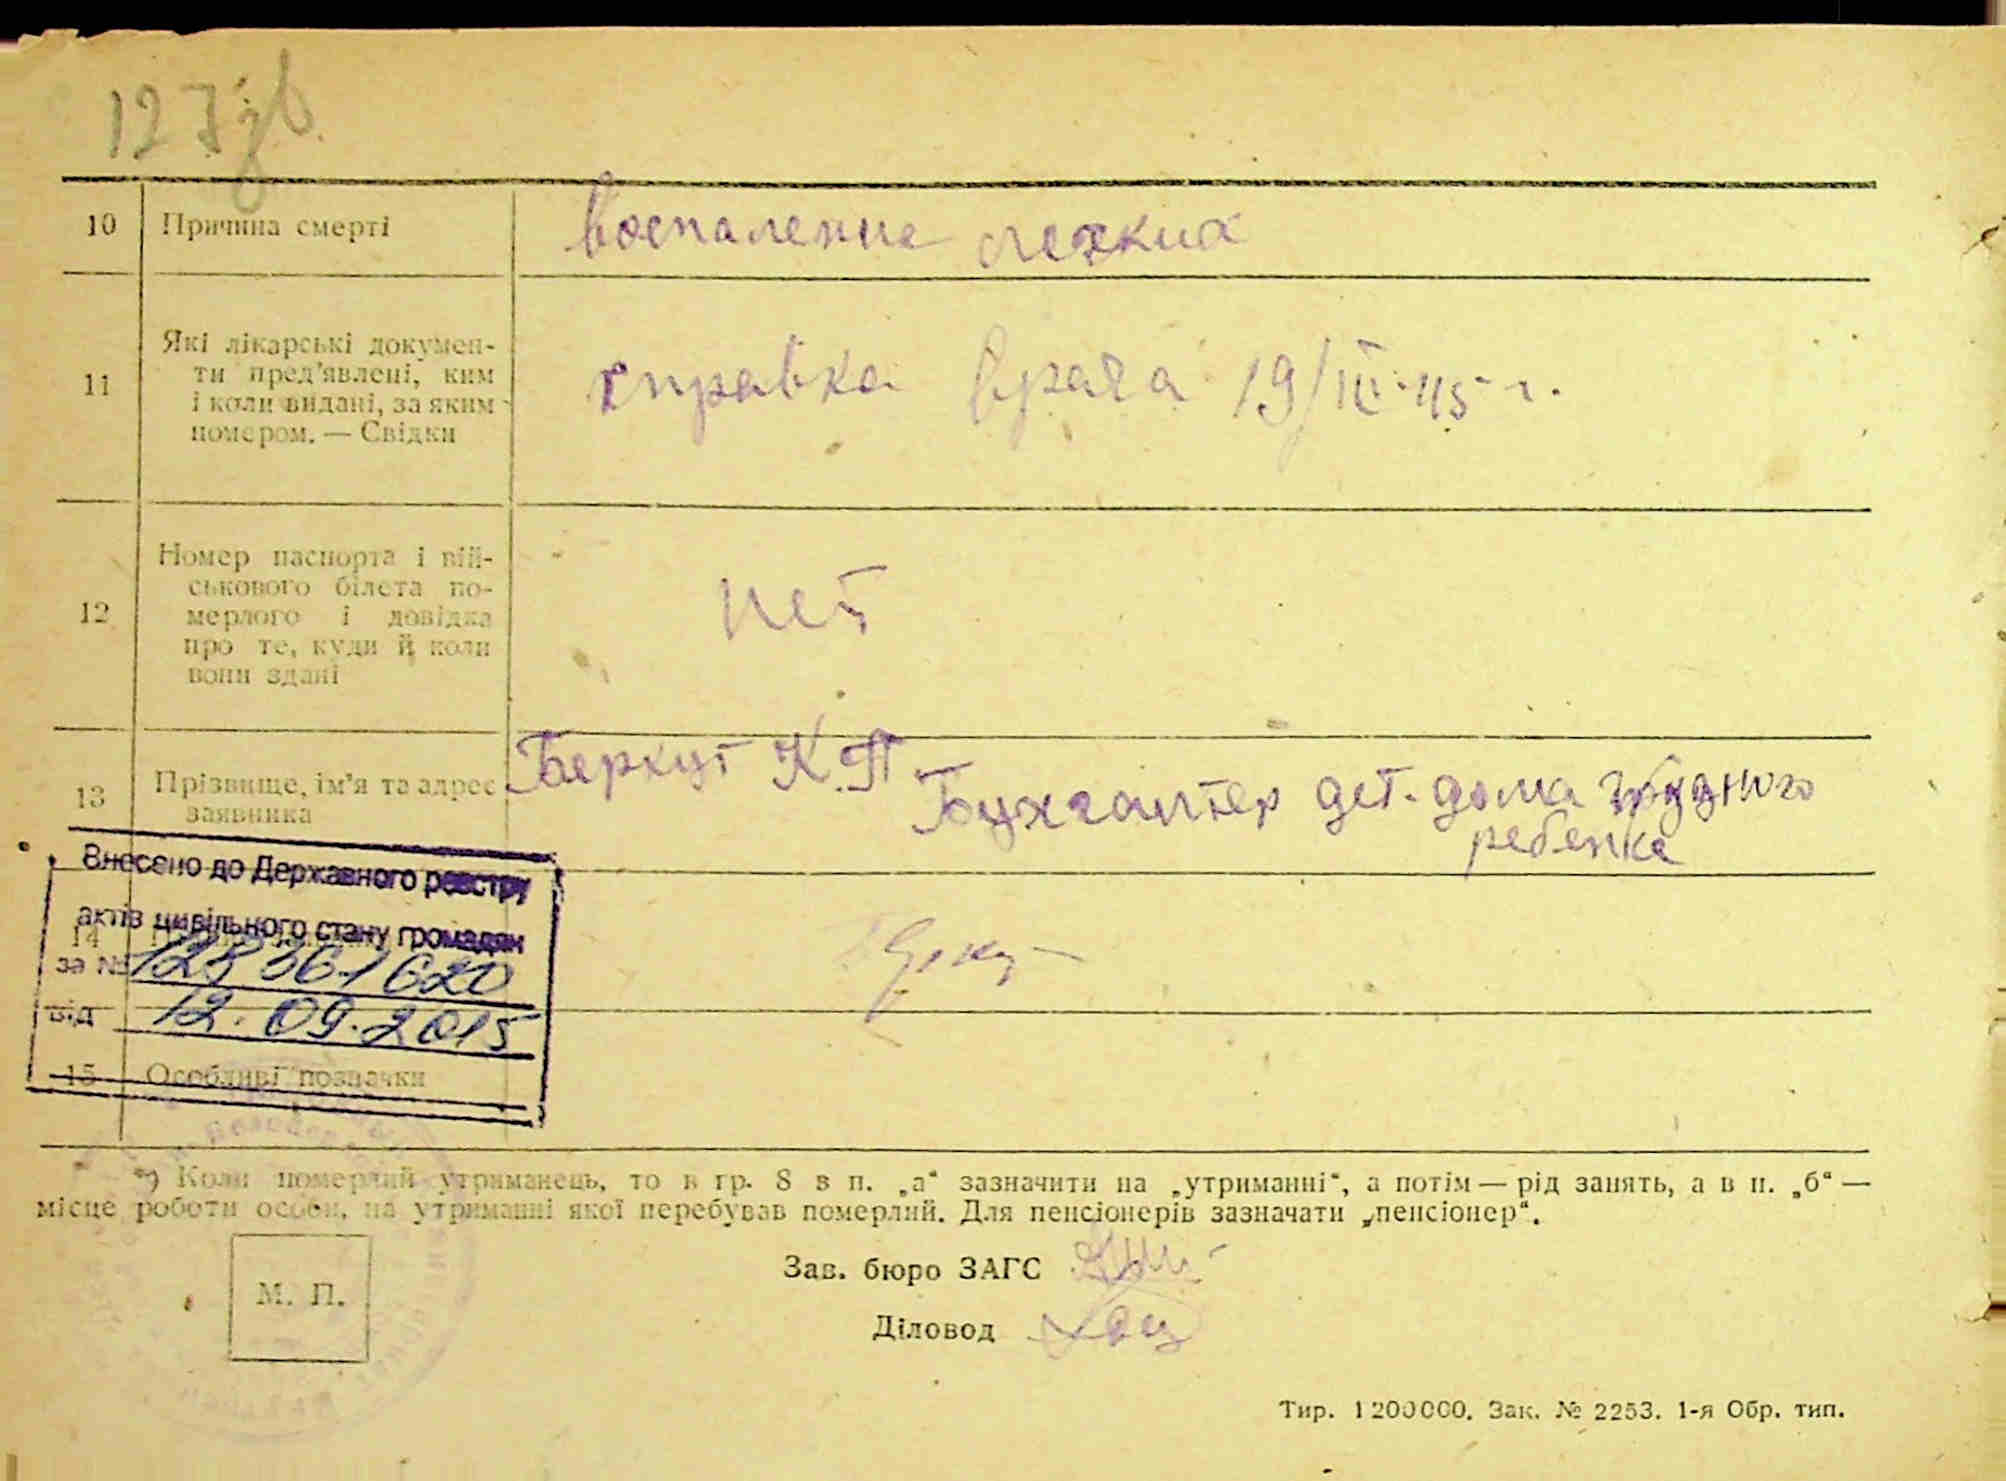 127 зв.
10 Причина смерті воспаление легких
11 Які лікарські докумен-
ти пред'явлені, ким
і коли видані, за яким
номером. — Свідки
справка врача 19/III-45 г.
12 Номер паспорта і вій-
ськового білета по-
мерлого і довідка
про те, куди й коли
вони здані
нет
13 Прізвище, ім'я та адрес
заявника
Беркут К.П.
Бухгалтер дет. дома грудного
ребенка
Внесено до Державного реєстру
актів цивільного стану громадян
14
за №
від 12.09.2015
15 Особливі позначки
*) Коли померлий утриманець, то в гр. 8 в п. „а“ зазначити на „утриманні“, а потім — рід занять, а в п. „б“ —
місце роботи особи, на утриманні якої перебував померлий. Для пенсіонерів зазначати „пенсіонер“.
Зав. бюро ЗАГС
М. П.
Діловод
Тир. 1200000. Зак. № 2253. 1-я Обр. тип.